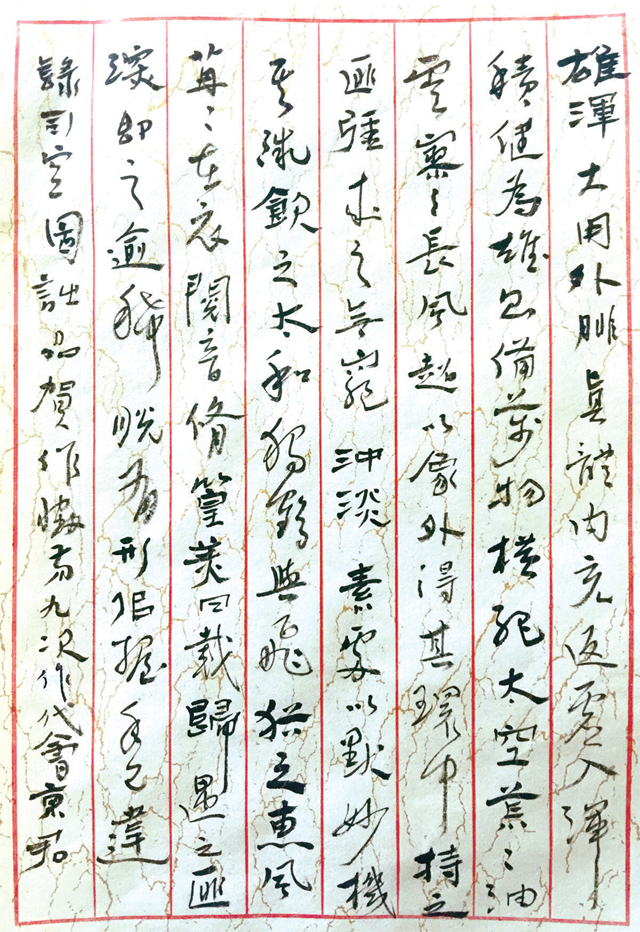 雄渾 大用外腓真體內充返虛入渾
積健為雄具備萬物橫絕太空荒〻油
雲寥〻長風超以象外得其環中持之
匪彊求之無窮 沖淡 素處以默妙機
其微飲之太和獨鶴與飛猶之惠風
苒〻在衣閱音脩篁美曰載歸遇之匪
深即之逾稀脫有形佀握手已違
錄司空圖詩品賀作協第九次作代會